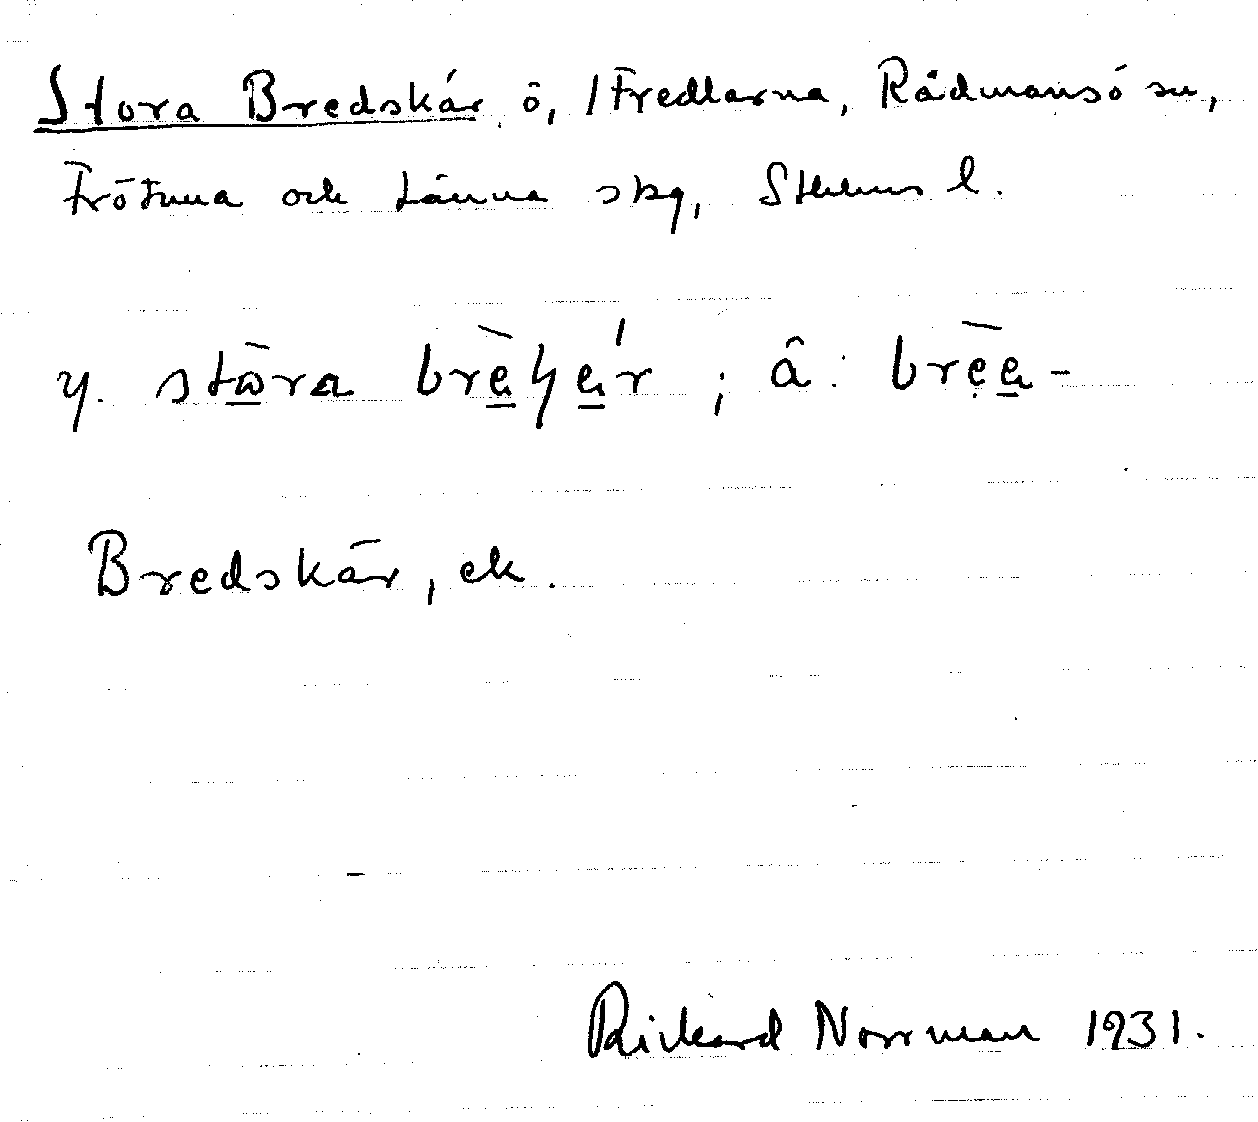 Stora Bredskär, ö, i Fredlarna, Rådmansö sn,
Frötuna och Länna skg, Sthlms l.
y. stωra brèɧer ; â: brèe-
Bredskär, ek.
Rickard Norrman 1931.